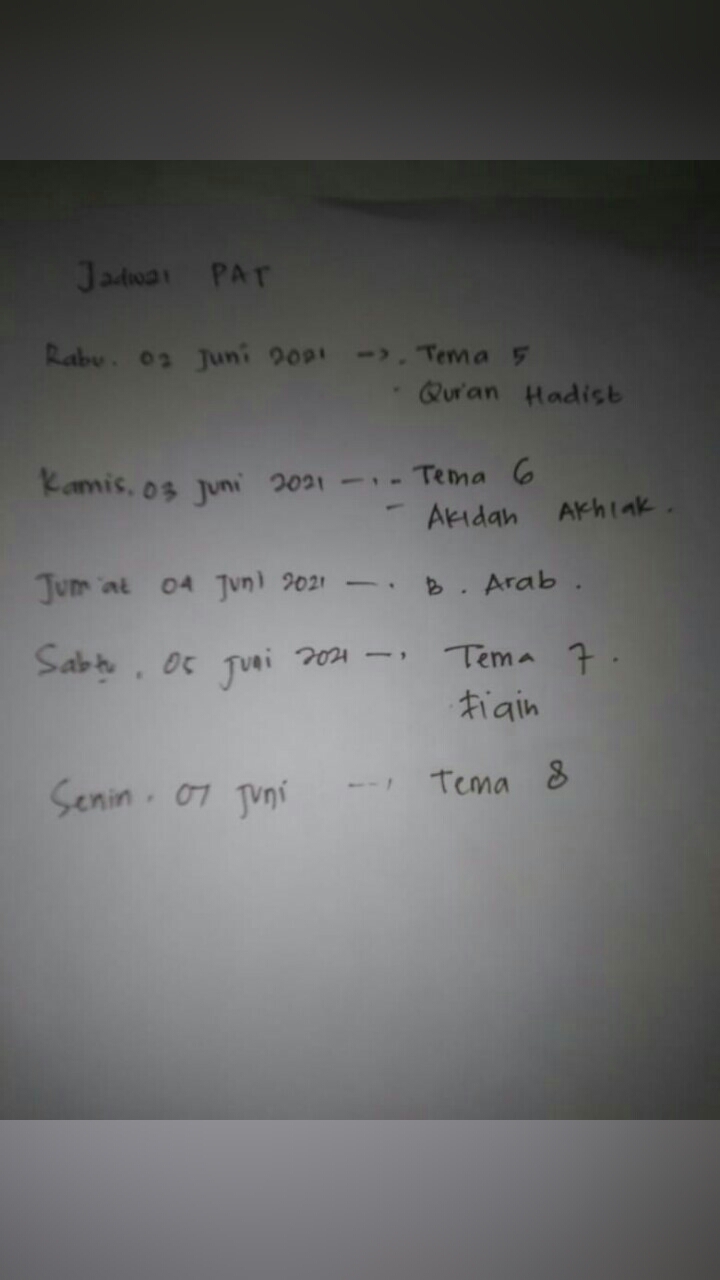 Jadwal PAT
Rabu. 02 Juni 2021 -> . Tema 5
· Qur'an Hadist
Kamis. 03 Juni 2021 - Tema 6
- Akidah Akhlak.
Jum'at 04 Juni 2021 - B. Arab.
Sabtu, 05 Juni 2021 - Tema 7.
Fiqih
Senin. 07 Juni - Tema 8